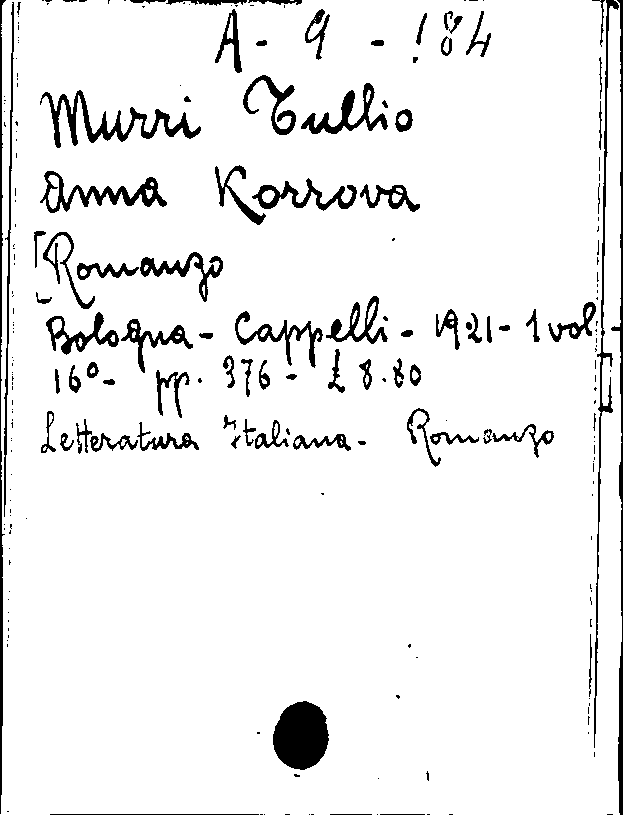 A - 9 - 184
Murri Tullio
Anna Korrova
[Romanzo
Bologna - Cappelli - 1921 - 1 vol -
16° - pp. 376 - £ 8.80
Letteratura Italiana - Romanzo